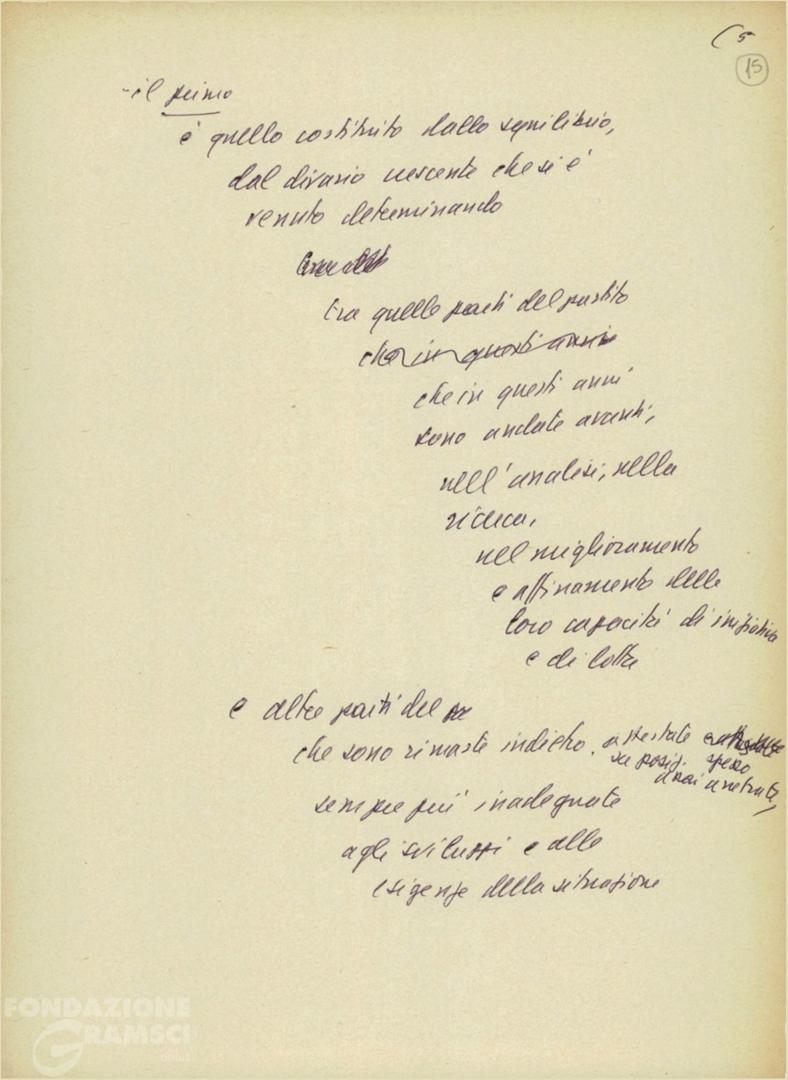 (5
15
- il primo
è quello costituito dallo squilibrio,
dal divario crescente che si è
venuto determinando
tra quelle parti del partito
che in questi anni
che in questi anni
sono andate avanti,
nell'analisi, nella
ricerca,
nel miglioramento
e affinamento delle
loro capacità di iniziativa
e di lotta
e altre parti del
che sono rimaste indietro, attestate
su posiz. spesso
assai arretrate,
sempre più inadeguate
agli sviluppi e alle
esigenze della situazione
FONDAZIONE
GRAMSCI
onlus